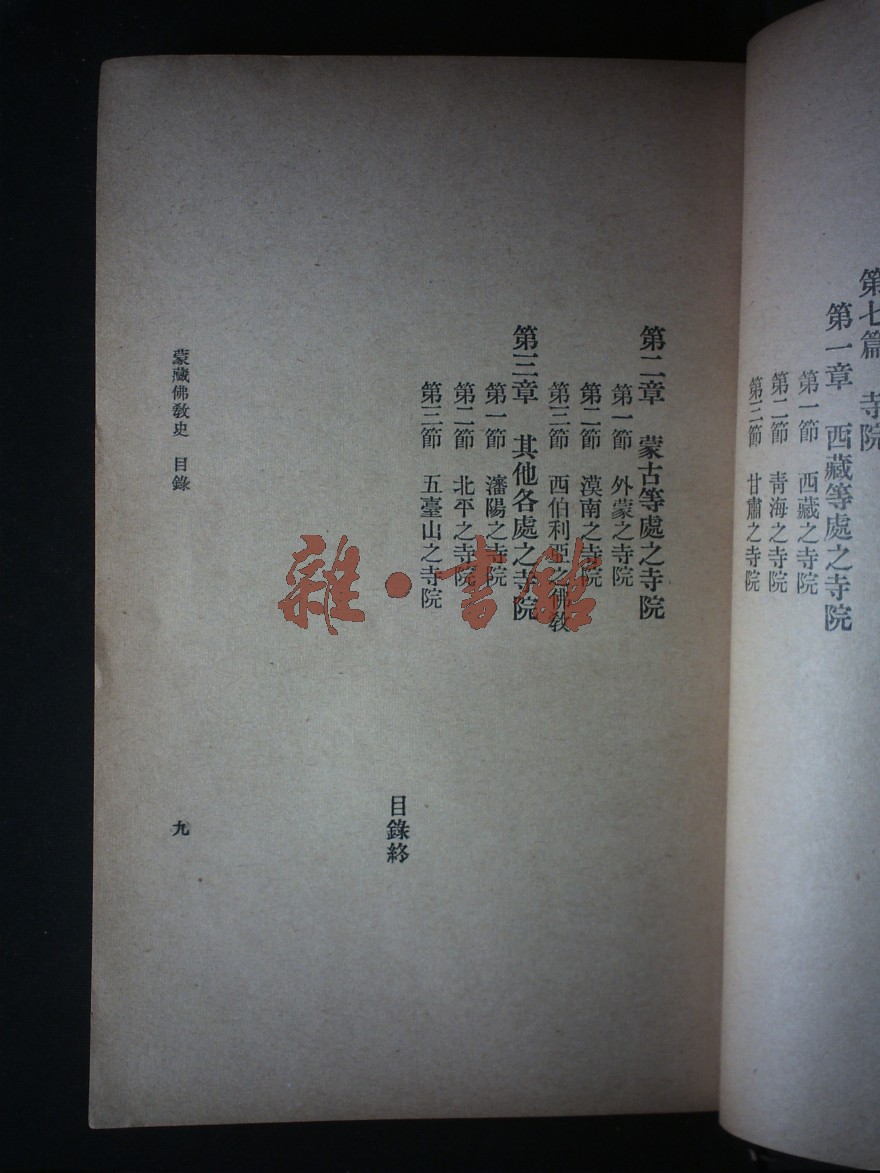 第七篇 寺院
第一章 西藏等處之寺院
第一節 西藏之寺院
第二節 青海之寺院
第三節 甘肅之寺院
第二章 蒙古等處之寺院
第一節 外蒙之寺院
第二節 漠南之寺院
第三節 西伯利亞之佛教
第三章 其他各處之寺院
第一節 瀋陽之寺院
第二節 北平之寺院
第三節 五臺山之寺院
目錄終
蒙藏佛教史 目錄
九
雜·書館